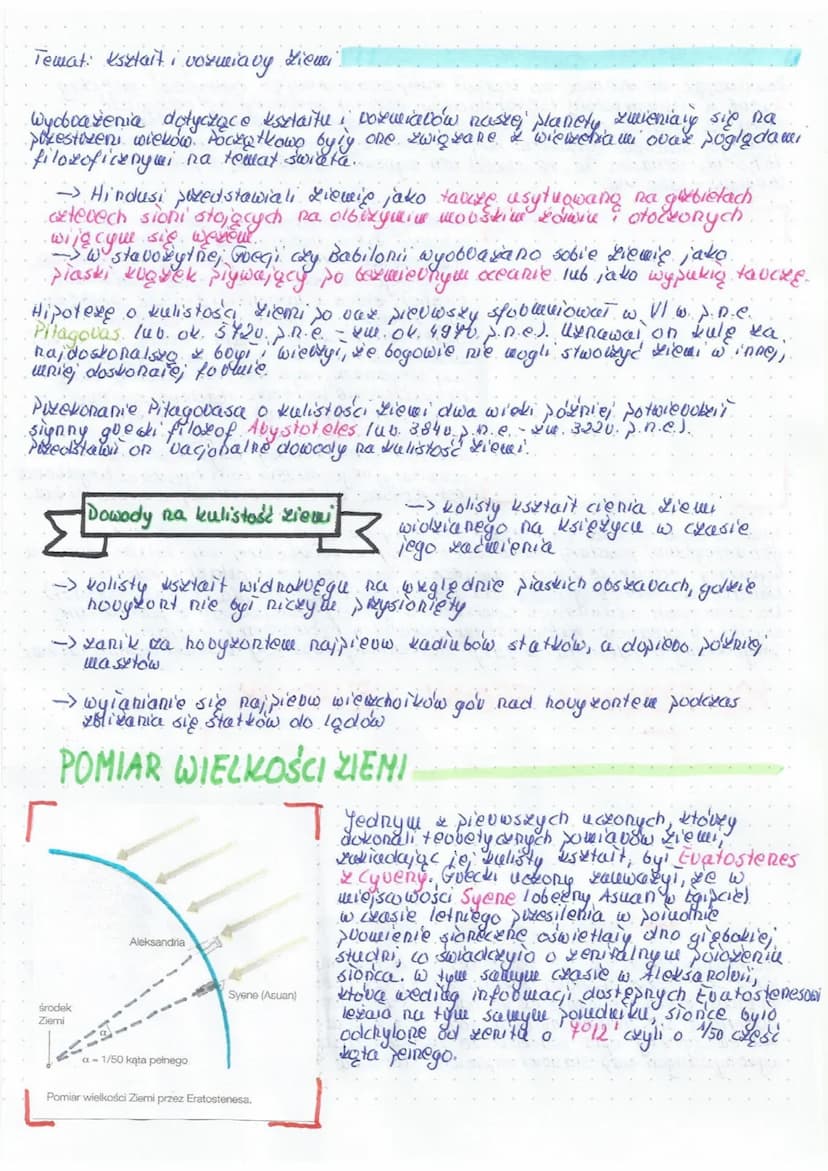 Temat: kształt i rozmiary Ziemi
Wyobrażenia dotyczące kształtu i rozmiarów naszej planety zmieniały się na
przestrzeni wieków. Początkowo były one związane z wierzeniami oraz poglądami
filozoficznymi na temat świata.
→ Hindusi przedstawiali Ziemię jako tarczę usytuowaną na grzbietach
czterech słoni stojących na olbrzymim morskim żółwiu i otoczonych
wijącym się wężem.
→ w starożytnej Grecji czy Babilonii wyobrażano sobie Ziemię jako
płaski krążek pływający po bezmiernym oceanie lub jako wypukłą tarczę.
Hipotezę o kulistości Ziemi po raz pierwszy sformułował w VI w. p.n.e.
Pitagoras (ur. ok. 572r. p.n.e. - zm. ok. 497r. p.n.e.). Uznawał on kulę za
najdoskonalszą z brył i wierzył, że bogowie nie mogli stworzyć Ziemi w innej,
mniej doskonałej formie.
Przekonanie Pitagorasa o kulistości Ziemi dwa wieki później potwierdził
słynny grecki filozof Arystoteles (ur. 384r. p.n.e. - zm. 322r. p.n.e.).
Przedstawił on racjonalne dowody na kulistość Ziemi.
Dowody na kulistość Ziemi
→ kolisty kształt cienia Ziemi
widzianego na Księżycu w czasie
jego zaćmienia
→ kolisty kształt widnokręgu na względnie płaskich obszarach, gdzie
horyzont nie był niczym przysłonięty
→ zanik za horyzontem najpierw kadłubów statków, a dopiero później
masztów
→ wyłanianie się najpierw wierzchołków gór nad horyzontem podczas
zbliżania się statków do lądów
POMIAR WIELKOŚCI ZIEMI
Aleksandria
Syene (Asuan)
środek
Ziemi
α
α – 1/50 kąta pełnego
Pomiar wielkości Ziemi przez Eratostenesa.
Jednym z pierwszych uczonych, którzy
dokonali teoretycznych pomiarów Ziemi,
zakładając jej kulisty kształt, był Eratostenes
z Cyreny. Grecki uczony zauważył, że w
miejscowości Syene (obecny Asuan w Egipcie)
w czasie letniego przesilenia w południe
promienie słoneczne oświetlały dno głębokiej
studni, co świadczyło o zenitalnym położeniu
słońca. w tym samym czasie w Aleksandrii,
która według informacji dostępnych Eratostenesowi
leżała na tym samym południku słońce było
odchylone od zenitu o 7°12' czyli o 1/50 część
kąta pełnego.